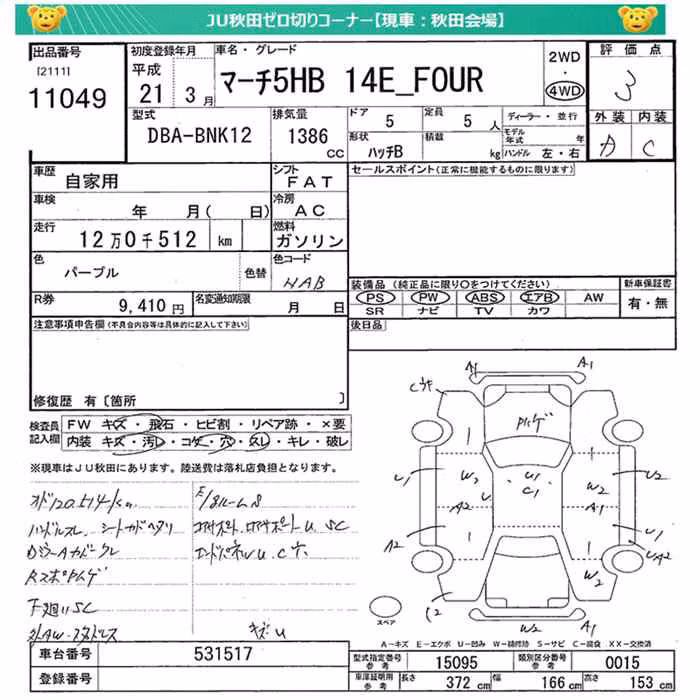 JU秋田ゼロ切りコーナー【現車：秋田会場】
出品番号 初度登録年月 車名・グレード 2WD 評価点
[2111] 平成 マーチ5HB 14E_FOUR ・ 3
11049 21年 3月 4WD
型式 排気量 ドア 定員 ディーラー・並行 外装 内装
DBA-BNK12 1386 cc 5 5人 モデル年式 年 A C
形状 積載
ハッチB kg ハンドル 左・右
車歴 自家用 シフト FAT セールスポイント(正常に機能するものに限ります)
車検 年 月( 日) 冷房 AC
走行 12万0千512 km 燃料 ガソリン
色 パープル 色替 色コード HAB
装備品 (純正品に限り○をつけてください) 新車保証書
PS PW ABS エアB AW 有・無
SR ナビ TV カワ
R券 9,410円 名変通知期限 月 日
注意事項申告欄(不具合内容等は具体的に記入して下さい) 後日品
修復歴 有〔箇所 〕
検査員記入欄 FW キズ・飛石・ヒビ割・リペア跡・×要
内装 キズ・汚レ・コゲ・穴・スレ・キレ・破レ
※現車はJU秋田にあります。陸送費は落札店負担となります。
ハンドルスレ
下廻りSC
キズU
A1 A1
U1 W2 U W2 U2
U1 C1
A2 A1
A2 U1
UA2
W2
W2 A1
スペア
A－キズ E－エクボ U－凹み W－補修跡 S－サビ C－腐食 XX－交換済
車台番号 531517 型式指定番号 参考 15095 類別区分番号 参考 0015
登録番号 車庫証明用 参考 長さ 372 cm 幅 166 cm 高さ 153 cm